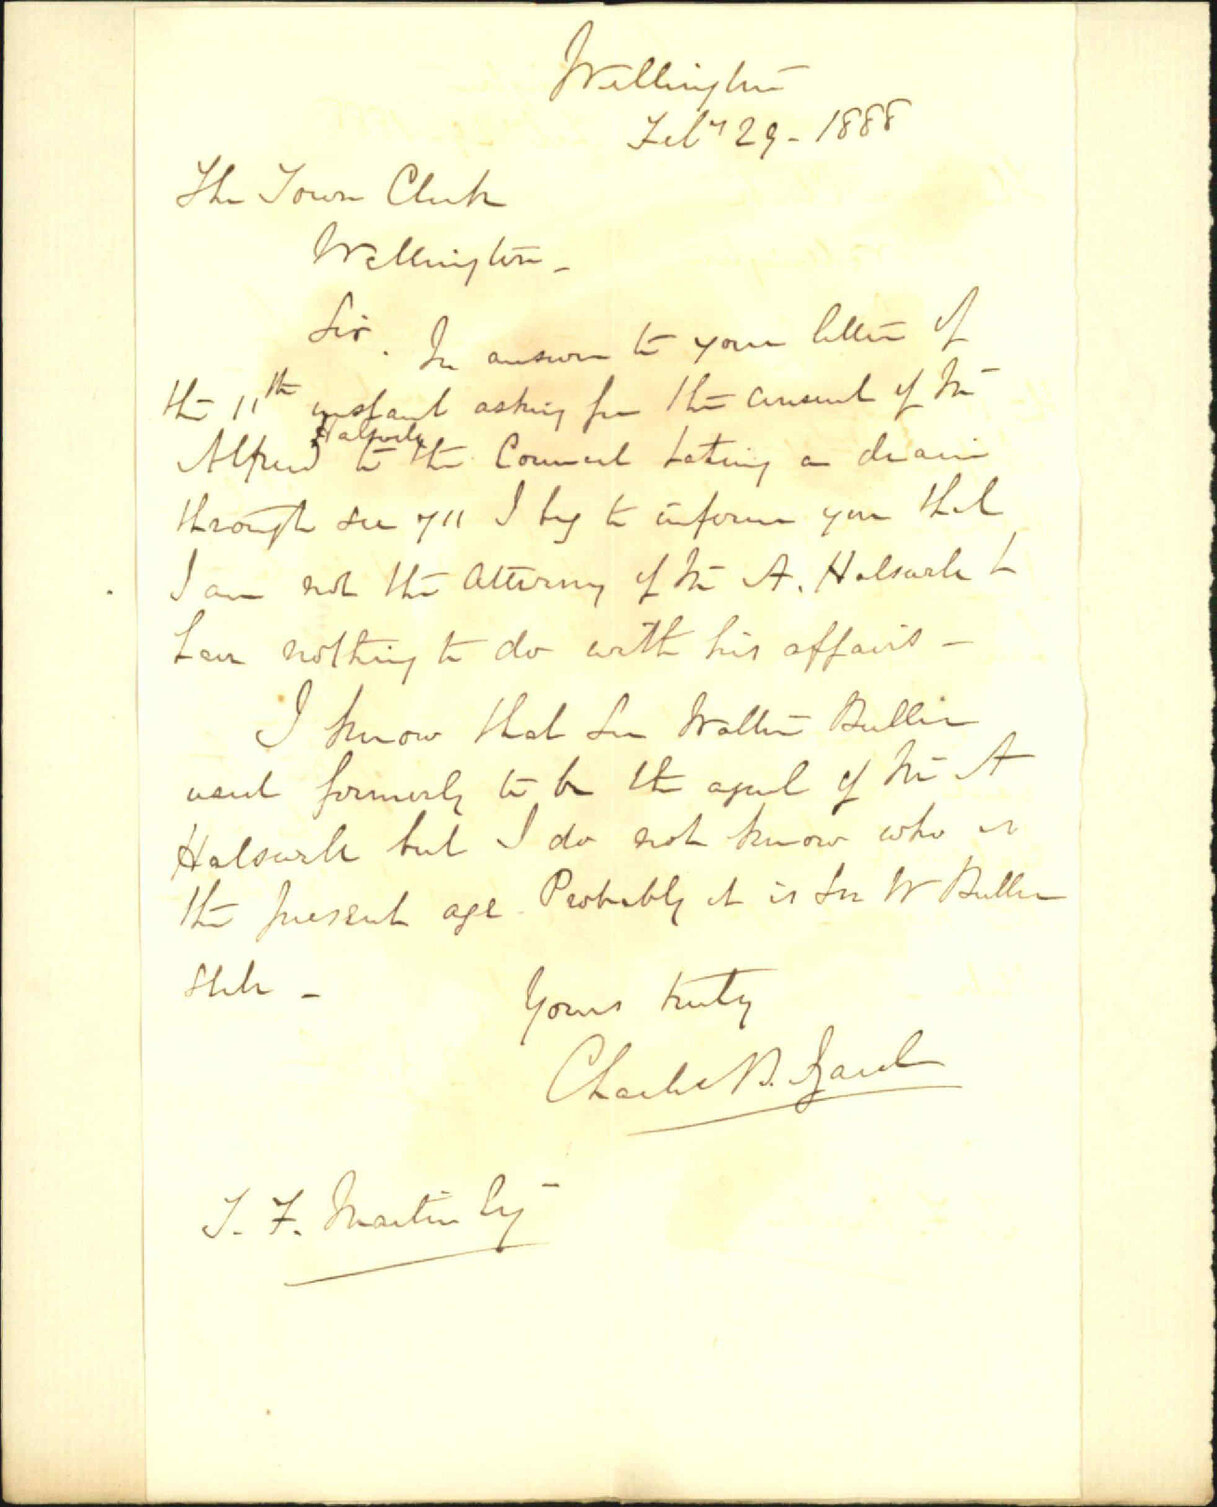 Wellington
Feby 29 - 1888
The Town Clerk
Wellington -
Sir. In answer to your letter of
the 11th instant asking for the consent of Mr
Halswelle
Alfred to the Council taking a drain
through sec 711 I beg to inform you that
I am not the Attorney of Mr A. Halswelle &
have nothing to do with his affairs -
I know that Sir Walter Buller
used formerly to be the agent of Mr A
Halswelle but I do not know who is
the present age. Probably it is Sir W Buller
still -
Yours truly
Charles B. Izard
T. F. Martin Esq